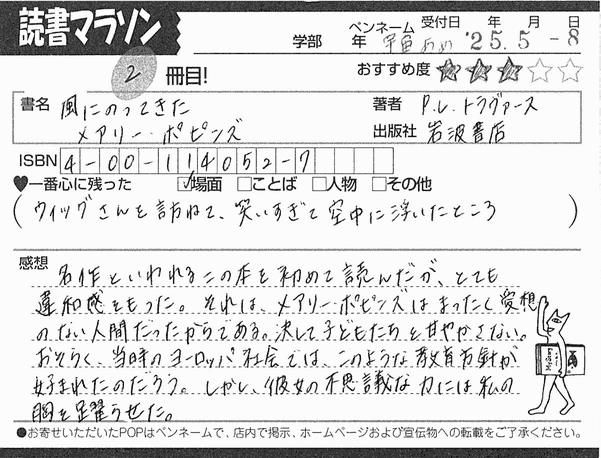 読書マラソン
学部 年 ペンネーム 宇宙あめ 受付日 '25年 5月 -8日
2 冊目!
おすすめ度 ★★★☆☆
書名 風にのってきた
メアリー・ポピンズ
著者 P.L.トラヴァース
出版社 岩波書店
ISBN 4-00-114052-7
♥一番心に残った ☑場面 □ことば □人物 □その他
(ウィッグさんを訪ねて、笑いすぎて空中に浮いたところ)
感想
名作といわれるこの本を初めて読んだが、とても
違和感をもった。それは、メアリー・ポピンズはまったく愛想
のない人間だったからである。決して子どもたちを甘やかさない。
おそらく、当時のヨーロッパ社会では、このような教育方針が
好まれたのだろう。しかし、彼女の不思議な力には私の
胸を躍らせた。
●お寄せいただいたPOPはペンネームで、店内で掲示、ホームページおよび宣伝物への転載をご了承ください。